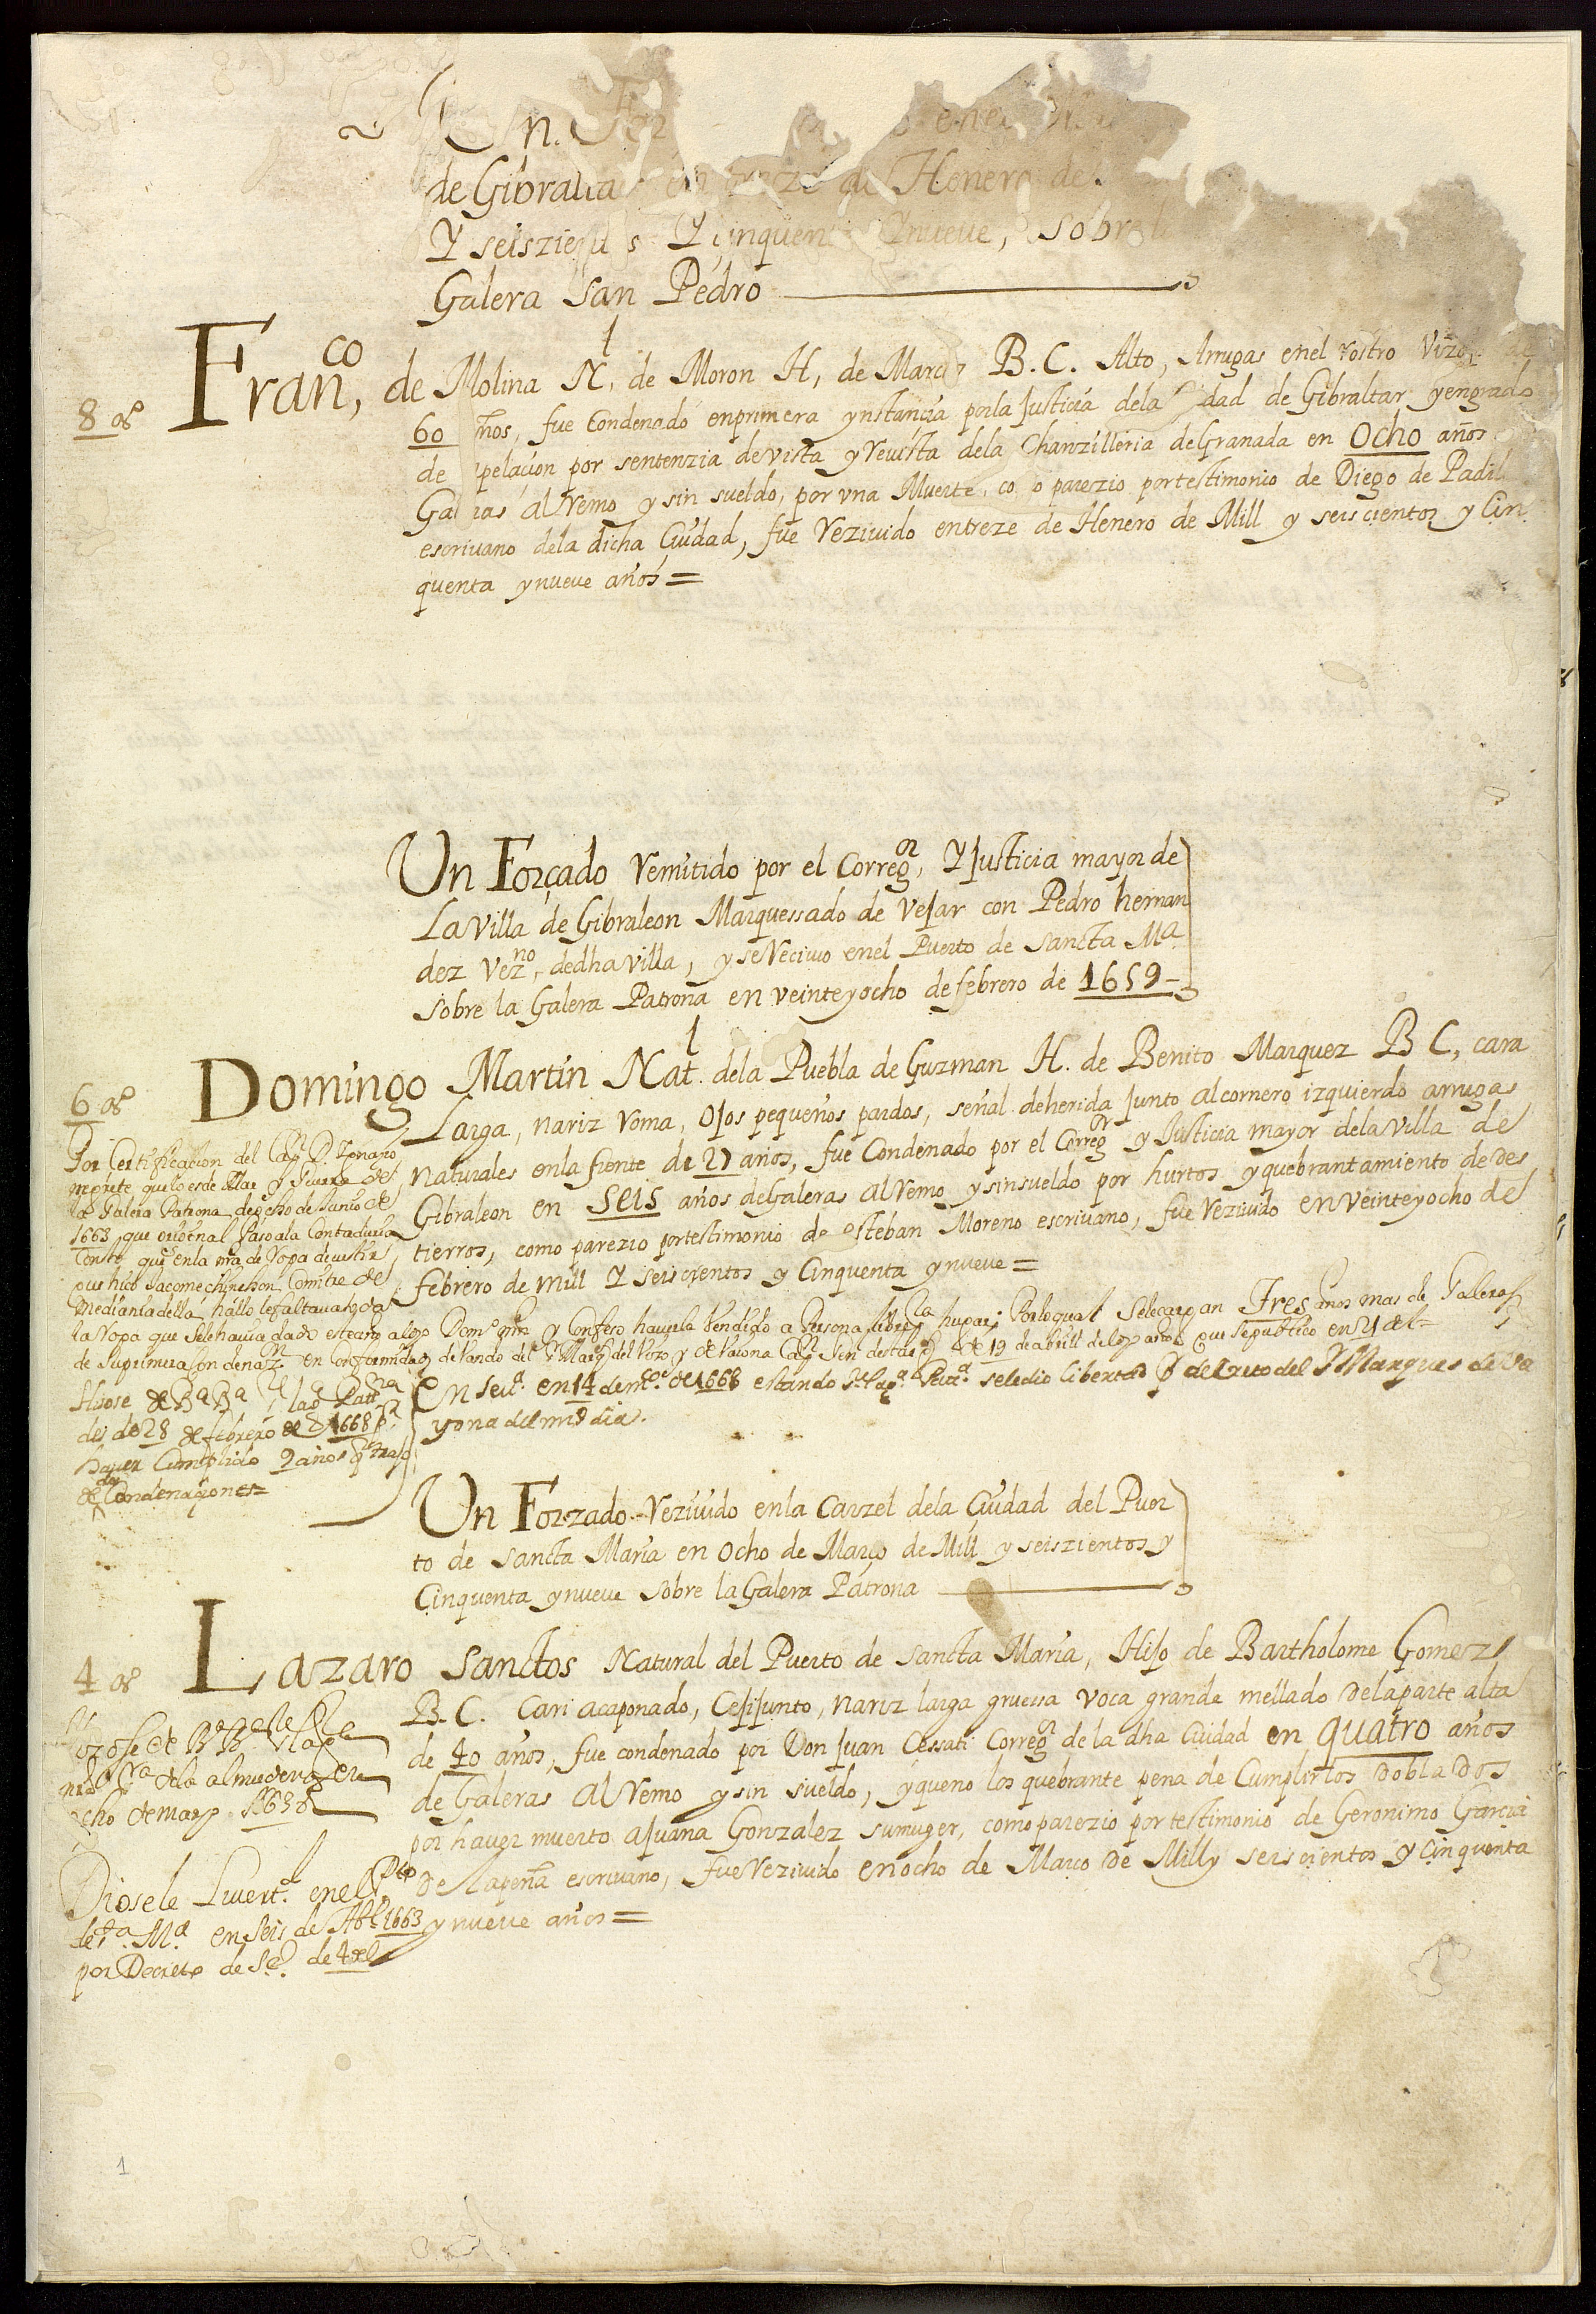 Un. For
de Gibralta en treze de Henero de
Y seiszientos Y Cinquenta Ynueve, sobre la
Galera San Pedro
1
8 as
Fran,co de Molina N. de Moron H, de Marcos B. C. Alto, Arrugas enel rostro Vizco, de
60 años, fue Condenado enprimera ynstancia porla Justicia dela Ciudad de Gibraltar yengrado
de apelacion por sentenzia devista yRevista dela Chanzilleria deGranada en Ocho años
Galeras alRemo y sin sueldo, por vna Muerte, como parezio portestimonio de Diego de Padil
escrivano dela dicha Çiudad, fue Rezivido entreze de Henero de Mill y seiscientos y Cin
quenta ynueve años =
Un Forçado Remitido por el Corregor, YJusticia mayor de
La Villa de Gibraleon Marquessado de Vejar con Pedro hernan
dez Vezno, dedha villa, yseRecivio enel Puerto de Sancta Ma
sobre la Galera Patrona en veinteyocho defebrero de 1659
1
6 as
Domingo Martin Nat. dela Puebla de Guzman H. de Benito Marquez B C, cara
Larga, nariz Roma, Ojos pequeños pardos, señal deherida Junto alcornero izquierdo arrugas
naturales enla frente de 27 años, fue Condenado por el Corregr y Justicia mayor delaVilla de
Gibraleon en SEIS años deGaleras alRemo ysinsueldo por hurtos yquebrantamiento dedes
tierros, como parezio portestimonio de esteban Moreno escrivano, fue Rezivido enVeinteyocho de
febrero de mill Y seiscientos y Cinquenta ynueve =
Por Certificacion del
la Galera Patrona de ocho de Junio de
1663, que original Paso ala Contaduria
Conste, que enla mra de Ropa devestir
que hizo Jacome Comitre de
Mediania della, hallo lefaltava toda
la Ropa que Selehavia dado y Confeso haverla Vendido a Persona libre Porloqual Selecargan Tres años mas de Galeras
de Suprimera Condenazn en Conformidad deVando del Sr Marqs del Viso y de Vaiona de 19 de abrill que Sepublico en 21 del
en 14 de de 1668 estando seledio libertad del Marques de Va
yona del mismo dia.
desde 28 de febrero de 1668
haver Cumplido 9 años
de Condenaçiones =
Un Forzado Rezivido enla Carzel dela Çiudad del Puer
to de Sancta Maria en Ocho de Março de Mill y seiszientos y
Cinquenta ynueve sobre laGalera Patrona
4 as
Lazaro Sanctos Natural del Puerto de Sancta Maria, Hijo de Bartholome Gomez
B. C. Cari acaponado, Cejijunto, nariz larga gruessa Voca grande mellado Delaparte alta
de 40 años, fue condenado por Don Juan Cessati Corregor de la dha Ciudad en quatro años
de Galeras alRemo ysin sueldo, yqueno los quebrante pena de Cumplirlos Doblados
por haver muerto aJuana Gonzalez sumuger, comoparezio portestimonio de Geronimo Garcia
De lapeña escrivano, fueRezivido enocho de Março De Milly seiscientos y Cinquenta
ynueve años =
dela almudena en
ocho demarzo
Diosele Livertd. enel Pto
de Sta. Ma en Seis de Abl 1663
por Decreto de Se. de 4 del
1